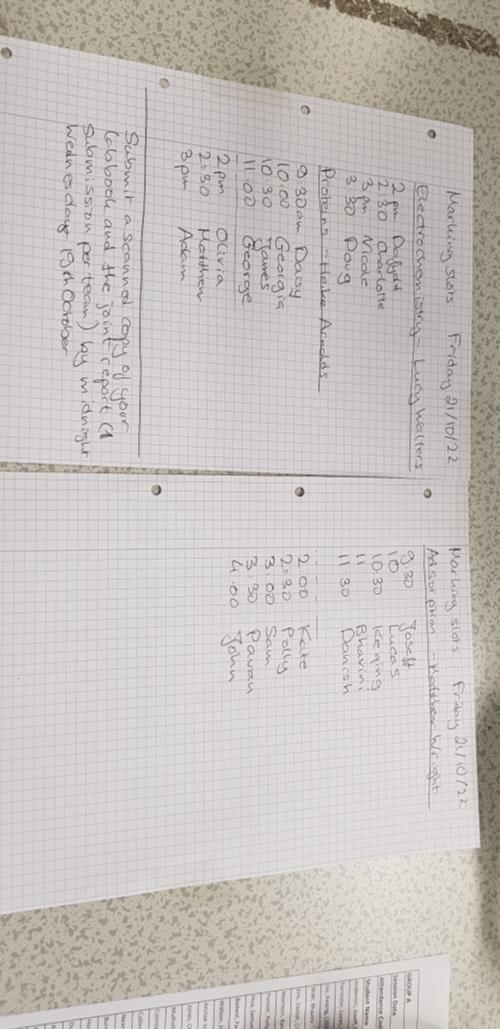 Marking slots Friday 21/10/22
Electrochemistry - Lucy Walters
2 pm Dafydd
2:30 Charlotte
3 pm Nicole
3.30 Doug
Proteins -
9:30am Daisy
10:00 Georgia
10:30 James
11:00 George
2pm Olivia
2:30 Matthew
3pm Adam
Submit a scanned copy of your
labbook and the joint report (1
submission per team) by midnight
Wednesday 19th October
Marking slots Friday 21/10/22
Adsorption - Matthew Wright
9:30
10 Lucas
10:30 Keqing
11 Bhavini
11:30 Danish
2:00 Kate
2:30 Polly
3:00 Sam
3:30 Pavan
4:00 John
GROUP A
Session Date
Attendance
Student Name